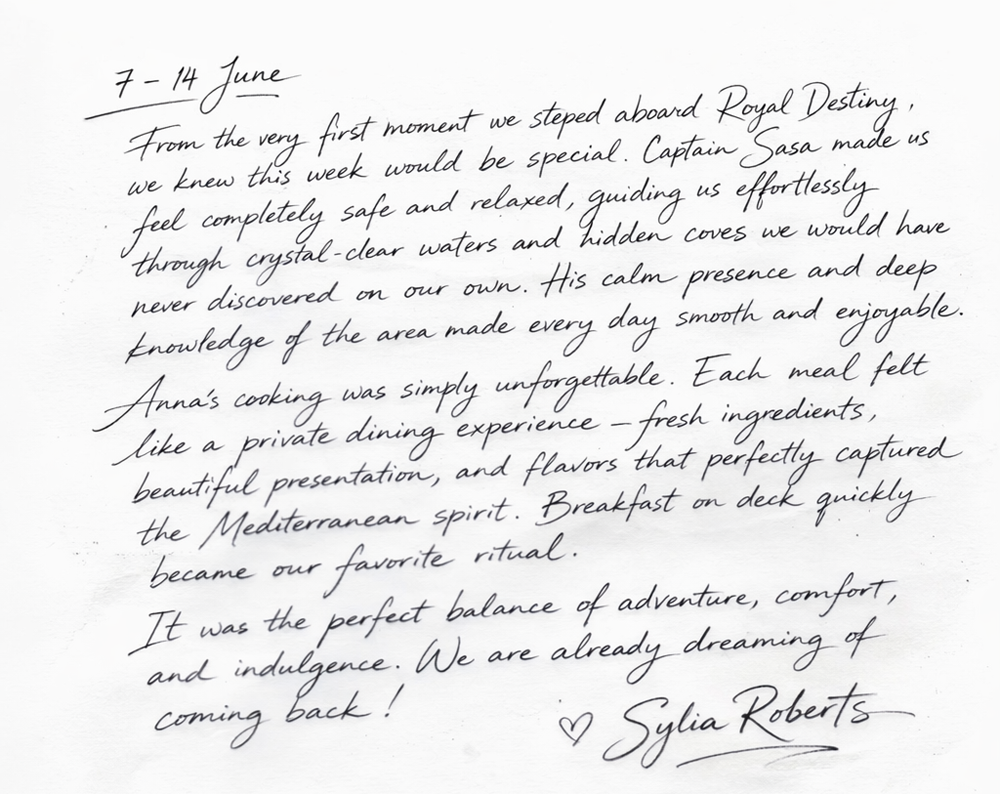 7 – 14 June
From the very first moment we steped aboard Royal Destiny,
we knew this week would be special. Captain Sasa made us
feel completely safe and relaxed, guiding us effortlessly
through crystal-clear waters and hidden coves we would have
never discovered on our own. His calm presence and deep
knowledge of the area made every day smooth and enjoyable.
Anna's cooking was simply unforgettable. Each meal felt
like a private dining experience – fresh ingredients,
beautiful presentation, and flavors that perfectly captured
the Mediterranean spirit. Breakfast on deck quickly
became our favorite ritual.
It was the perfect balance of adventure, comfort,
and indulgence. We are already dreaming of
coming back!
♡ Sylia Roberts